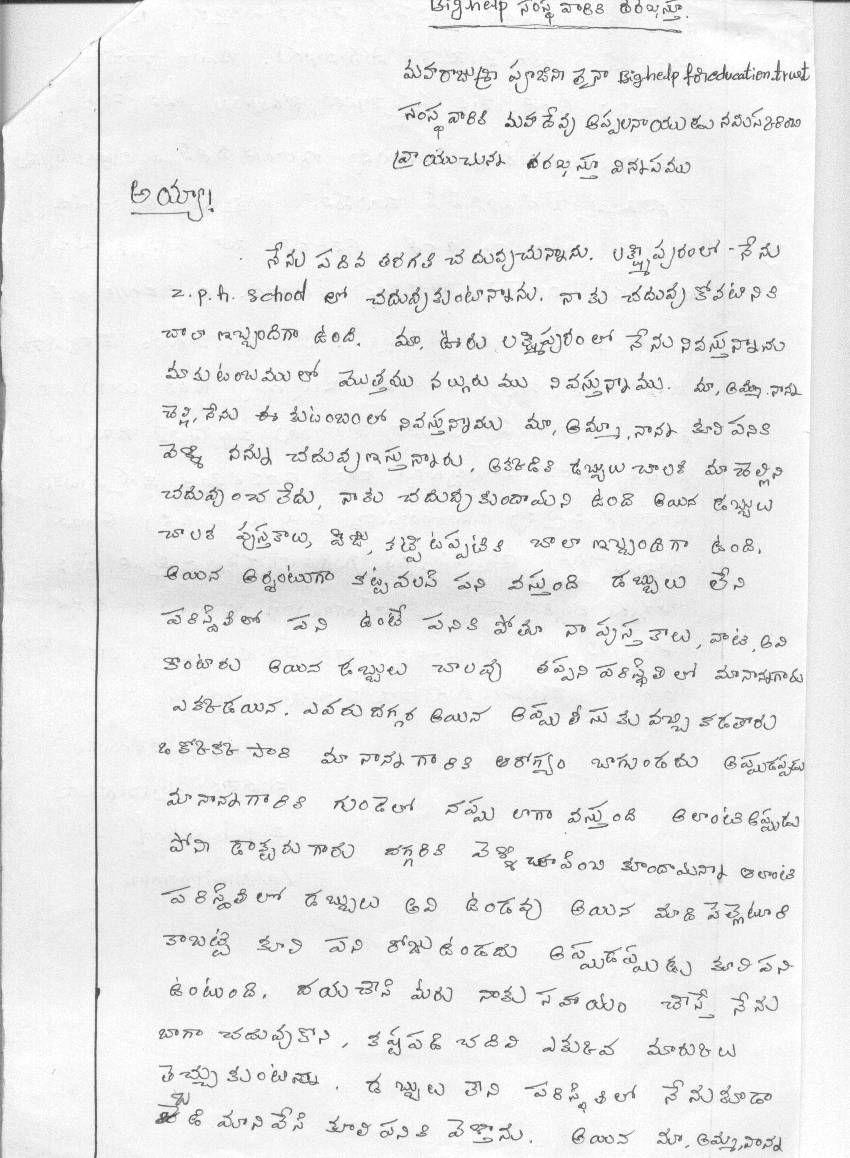 Big help సంస్థ వారికి దరఖాస్తూ.
మహారాజుశ్రీ పూజని శైనా Bighelp for education.trust
సంస్థ వారికి మహాదేవు అప్పలనాయుడు నమస్కరించి
వ్రాయుచున్న దరఖాస్తూ విన్నపము
అయ్యా!
నేను పదివ తరగతి చదువుచున్నాను. లక్ష్మిపురంలో నేను
Z.p.h. School లో చదువుకుంటాన్నాను. నాకు చదువు కోవటానికి
చాలా ఇబ్బందిగా ఉంది. మా, ఊరు లక్ష్మిపురం లో నేను నివస్తున్నాను
మా కుటంబములో మొత్తము నల్గురుము నివస్తున్నాము. మా, అమ్మా, నాన్న
చెల్లి, నేను ఈ కుటంబంలో నివస్తున్నాము మా, అమ్మా, నాన్న కూలి పనికి
వెళ్ళి నన్ను చదువు ఇస్తున్నారు, అక్కడికి డబ్బులు చాలక మా చెల్లిని
చదువుంచ లేదు, నాకు చదువుకుందామని ఉంది అయిన డబ్బులు
చాలక పుస్తకాలు, ఫీజు, కట్టేటప్పటికి చాలా ఇబ్బందిగా ఉంది.
అయిన అర్శంటుగా కట్టవలసి పని వస్తుంది డబ్బులు లేని
పరిస్థితిలో పని ఉంటే పనికి పోతూ నా పుస్తకాలు, వాటి, అవి
కొంటారు అయిన డబ్బులు చాలవు తప్పని పరిస్థితి లో మానాన్నగారు
ఎక్కడయిన. ఎవరుదగ్గర అయిన అప్పు తీసుకు వచ్చి కడతారు
ఒక్కొక్క సారి మా నాన్న గారికి ఆరోగ్యం బాగుండదు అప్పుడప్పుడు
మానాన్నగారికి గుండెలో నప్పు లాగా వస్తుంది అలాంటి అప్పుడు
పోని డాక్టరుగారు దగ్గరికి వెళ్ళి చూపించి కుందామన్నా అలాంటి
పరిస్థితిలో డబ్బులు అవి ఉండవు అయిన మాది పల్లెటూరి
కాబట్టి కూలి పని రోజు ఉండదు అప్పుడప్పుడు కూలిపని
ఉంటుంది. దయచేసి మీరు నాకు సహాయం చేస్తే నేను
బాగా చదువుకొని, కష్టపడి చదివి ఎక్కువ మారుకులు
తెచ్చుకుంటాను. డబ్బులు లేని పరిస్థితిలో నేనుకూడా
బడి మానివేసి కూలిపనికి వెళ్తాను. అయిన మా, అమ్మ, నాన్న